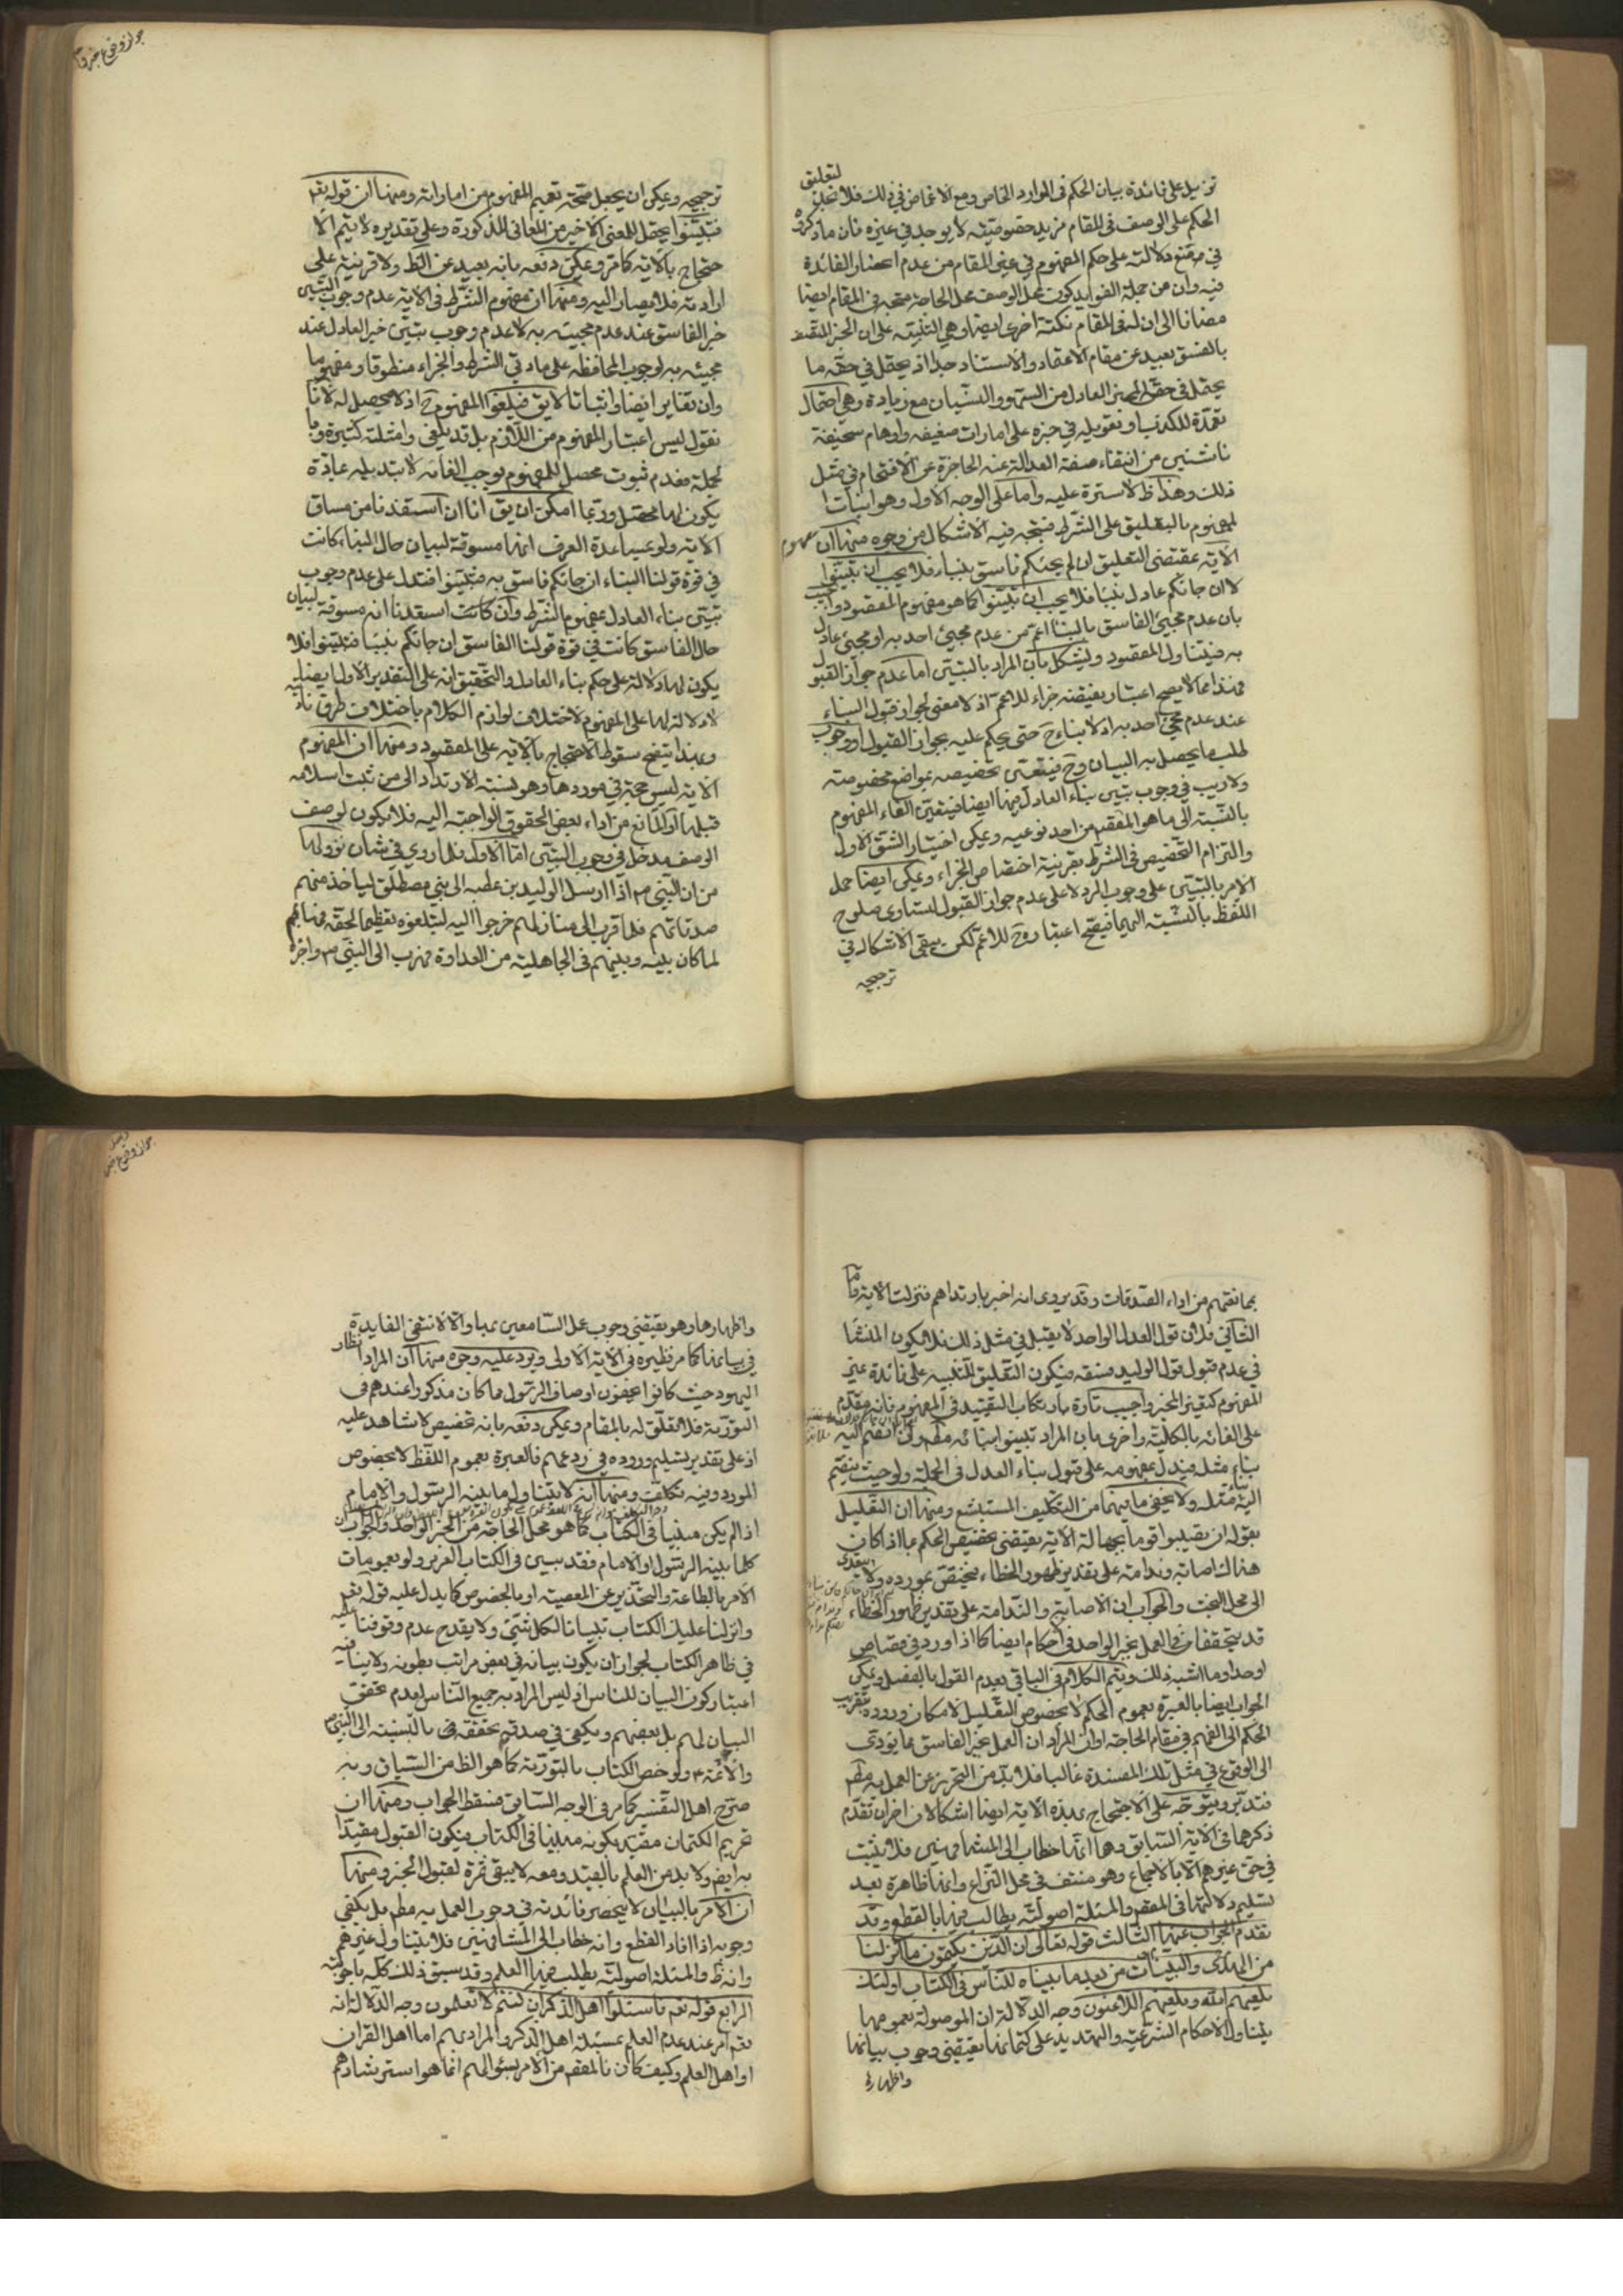 تزيد على فائدة بيان الحكم فى الموارد الخاص ومع الاغماض فى ذلك فلا لتعليق
الحكم على الوصف فى المقام مزيد خصوصيته لا يوجد فى غيره فان ما ذكروه
فى منع دلالته على حكم المفهوم فى غير المقام من عدم انحصار الفائدة
فيه وان من جملة الفوايد كون محل الوصف محل الحاجة متجه فى المقام ايضا
مضافا الى ان له فى المقام نكتة اخرى ايضا وهى التنبيه على ان الخبر المتصف
بالفسق بعيد عن مقام الاعتماد والاستناد جدا اذ يحتمل فى حقه ما
يحتمل فى حق الخبر العادل من السهو والنسيان مع زيادة وهى احتمال
تعمده للكذب او تعويله فى خبره على امارات ضعيفه واوهام سخيفة
ناشئين من انتفاء صفة العدالة عنه الحاجزة عن الاقتحام فى مثل
ذلك وهذا ظ لا سترة عليه واما على الوجه الاول وهو اثبات
المفهوم بالتعليق على الشرط فيتجه فيه الاشكال من وجوه منها ان مفهوم
الاية بمقتضى التعليق ان لم يجئكم فاسق بنباء فلا يجب ان تتبينوا
لا ان جائكم عادل بنبأ فلا يجب ان تتبينوا كما هو مفهوم المقصود واجيب
بان عدم مجيئ الفاسق بالنبأ اعم من عدم مجيئ احد به او مجيئ عادل
به فيتناول المقصود ويشكل بان المراد بالتبين اما عدم جواز القبول
فهذا مما لا يصح اعتبار نقيضه جزاء للاعم اذ لا معنى لجواز قبول النباء
عند عدم مجئ احد به اذ لا بناء ح حتى يحكم عليه بجواز القبول او وجوب
طلب ما يحصل به البيان وح فيتعين تخصيصه بمواضع مخصوصة
ولا ريب فى وجوب تبين نباء العادل فيها ايضا فيتعين الغاء المفهوم
بالنسبة الى ما هو المقصد من احد نوعيه ويمكن اختيار الشق الاول
والتزام التخصيص فى الشرط بقرينة اختصاص الجزاء ويمكن ايضا حمل
الامر بالتبين على وجوب الرد لا على عدم جواز القبول لتساوى صلوح
اللفظ بالنسبة اليهما فيصح اعتباره ح للاعم لكن يبقى الاشكال فى
ترجيحه
جواز وقوع خبر
ترجيحه ويمكن ان يجعل صحة تعميم المفهوم من اماراته ومنها ان قوله تعم
فتبينوا يحتمل للمعنى الاخير من المعانى المذكورة وعلى تقديره لا يتم الا
حتجاج بالاية كما مر ويمكن دفعه بانه بعيد عن الظ ولا قرينة على
ارادته فلا يصار اليه ومنها ان مفهوم الشرط فى الاية عدم وجوب التبين
خبر الفاسق عند عدم مجيئه به لا عدم وجوب تبين خبر العادل عند
مجيئه به لوجوب المحافظه على مادتى الشرط والجزاء منطوقا ومفهوما
وان تغاير ايضا واثباتا لا يق فيلغوا المفهوم ح اذ لا محصل له لانا
نقول ليس اعتبار المفهوم من اللازم بل قد يلغى وامثلته كثيرة وبا
لجملة فعدم ثبوت محصل للمفهوم يوجب الغائه لا تبديله عبارة
يكون لها محصل وربما امكن ان يق انا ان استفدنا من مساق
الاية ولو بمساعدة العرف انها مسوقة لبيان حال النباء كانت
فى قوة قولنا النباء ان جائكم فاسق به فتبينوا فتدل على عدم وجوب
تبين نباء العادل بمفهوم الشرط وان كانت استفدنا انه مسوقة لبيان
حال الفاسق كانت فى قوة قولنا الفاسق ان جائكم بنبأ فتبينوا فلا
يكون لها دلالة على حكم نباء العادل والتحقيق انه على التقدير الاول ايضا
لا دلالة لها على المفهوم لاختلاف لوازم الكلام باختلاف طرق تاديته
وبهذا يتضح سقوط الاحتجاج بالاية على المقصود ومنها ان المفهوم
الاية ليس حجة فى موردها وهو نسبة الارتداد الى من ثبت اسلامه
قبلها او المانع من اداء بعض الحقوق الواجبة اليه فلا يكون لوصف
الوصف مدخل فى وجوب التبين اما الاول فلما روى فى شان نزولها
من ان النبى ص اذا ارسل الوليد بن عقبه الى بنى مصطلق لياخذ منهم
صدقاتهم فلما قرب الى منازلهم خرجوا اليه ليتلقوه تعظيما لحقه فهابهم
لما كان بينه وبينهم فى الجاهلية من العداوة فهرب الى النبى ص واخبره
بمانعتهم من اداء الصدقات وقد يروى انه اخبر بارتداهم فنزلت الاية واما
الثانى فلان قول العدل الواحد لا يقبل فى مثل ذلك فلا يكون المنشأ
فى عدم قبول قول الوليد فسقه فيكون التعليق للتنبيه على فائدة غير
المفهوم كتغير المخبر واجيب تارة بارتكاب التقييد فى المفهوم فانه مقدم
على الغائه بالكلية واخرى بان المراد تبينوا بنائه مطم ولن انضم اليه
بناء مثله فيدل بمفهومه على قبول بناء العدل فى الجملة ولو حيث ينضم
اليه مثله ولا يخفى ما بهما من التكليف المستبشع ومنها ان التعليل
بقوله ان تصيبوا قوما بجهالة الاية يقتضى تخصيص الحكم بما اذا كان
هناك اصابة وندامة على تقدير ظهور الخطاء فيختص بمورده ولا يتعدى
الى محل البحث والجواب ان الاصابة والندامة على تقدير ظهور الخطاء
قد يتحققان فى العمل بخبر الواحد فى احكام ايضا كما اذا ورد فى قصاص
او حد او ما اشبه ذلك ويتم الكلام فى الباقى بعدم القول بالفصل ويمكن
الجواب ايضا بالعبرة بعموم الحكم لا بخصوص التعليل لامكان وروده لتقريب
الحكم الى الفهم فى مقام الحاجة او ان المراد ان العمل بخبر الفاسق مما يؤدى
الى الوقوع فى مثل تلك المفسدة غالبا فلا بد من التحرز عن العمل به مطم
فتدبر ويتوجه على الاحتجاج بهذه الاية ايضا اشكالان اخران تقدم
ذكرهما فى الاية السابق وهما انها خطاب الى المشافهين فلا يثبت
فى حق غيرهم الا بالاجماع وهو منتف فى محل النزاع وانها ظاهرة بعد
تسليم دلالتها فى المقصم والمسئلة اصولية يطالب فيها بالقطع وقد
تقدم الجواب عنها الثالث قوله تعالى ان الذين يكتمون ما انزلنا
من الهدى والبينات من بعد ما بيناه للناس فى الكتاب اولئك
يلعنهم الله ويلعنهم اللاعنون وجه الدلالة ان الموصولة بعمومها
يتناول الاحكام الشرعية والتهديد على كتمانها يقتضى وجوب بيانها
واظهارها
جواز وقوع خبر
واظهارها وهو يقتضى وجوب عمل السامعين بها والا لانتفى الفايدة
فى بيانها كما مر نظيره فى الاية الاولى ويرد عليه وجوه منها ان المراد انظار
اليهود حيث كانوا يخفون اوصاف الرسول مما كان مذكورا عندهم فى
التورية فلا تعلق له بالمقام ويمكن دفعه بانه تخصيص لا شاهد عليه
اذ على تقدير تسليم وروده فى ردعهم فالعبرة بعموم اللفظ لا بخصوص
المورد وفيه تكلف ومنها انه لا يتناول ما بينه الرسول والامام
اذا لم يكن مبنيا فى الكتاب كما هو محل الحاجة من الخبر الواحد والجواب ان
كلما بينه الرسول او الامام فقد بين فى الكتاب العزيز ولو بعمومات
الامر بالطاعة والتحذير عن المعصية او بالخصوص كما يدل عليه قوله تعم
وانزلنا عليك الكتاب تبيانا لكل شئ ولا يقدح عدم وقوفنا عليه
فى ظاهر الكتاب لجواز ان يكون بيانه فى بعض مراتب بطونه ولا ينافيه
اعتبار كون البيان للناس اذ ليس المراد به جميع الناس لعدم تحقق
البيان لهم بل بعضهم ويكفى فى صدقه تحققه فى بالنسبة الى النبى ص
والائمة ع ولو خص الكتاب بالتورية كما هو الظ من السياق وبه
صرح اهل التفسير كما مر فى الوجه السابق فسقط الجواب ومنها ان
تحريم الكتمان مقيد بكونه مبينا فى الكتاب فيكون القبول مقيدا
به ايض ولا بد من العلم بالقيد ومعه لا يبقى ثمرة لقبول الخبر ومنها
ان الامر بالبيان لا ينحصر فائدته فى وجوب العمل به مطم بل يكفى
وجوبه اذا افاد القطع وانه خطاب الى المشافهين فلا يتناول غيرهم
وانه ظ والمسئلة اصولية يطلب فيها العلم وقد سبق ذلك كله باجوبته
الرابع قوله تعم فاسئلوا اهل الذكر ان كنتم لا تعلمون وجه الدلالة انه
تعم امر عند عدم العلم بمسئلة اهل الذكر والمراد بهم اما اهل القران
او اهل العلم وكيف كان فالمقصم من الامر بسؤالهم انما هو استرشادهم